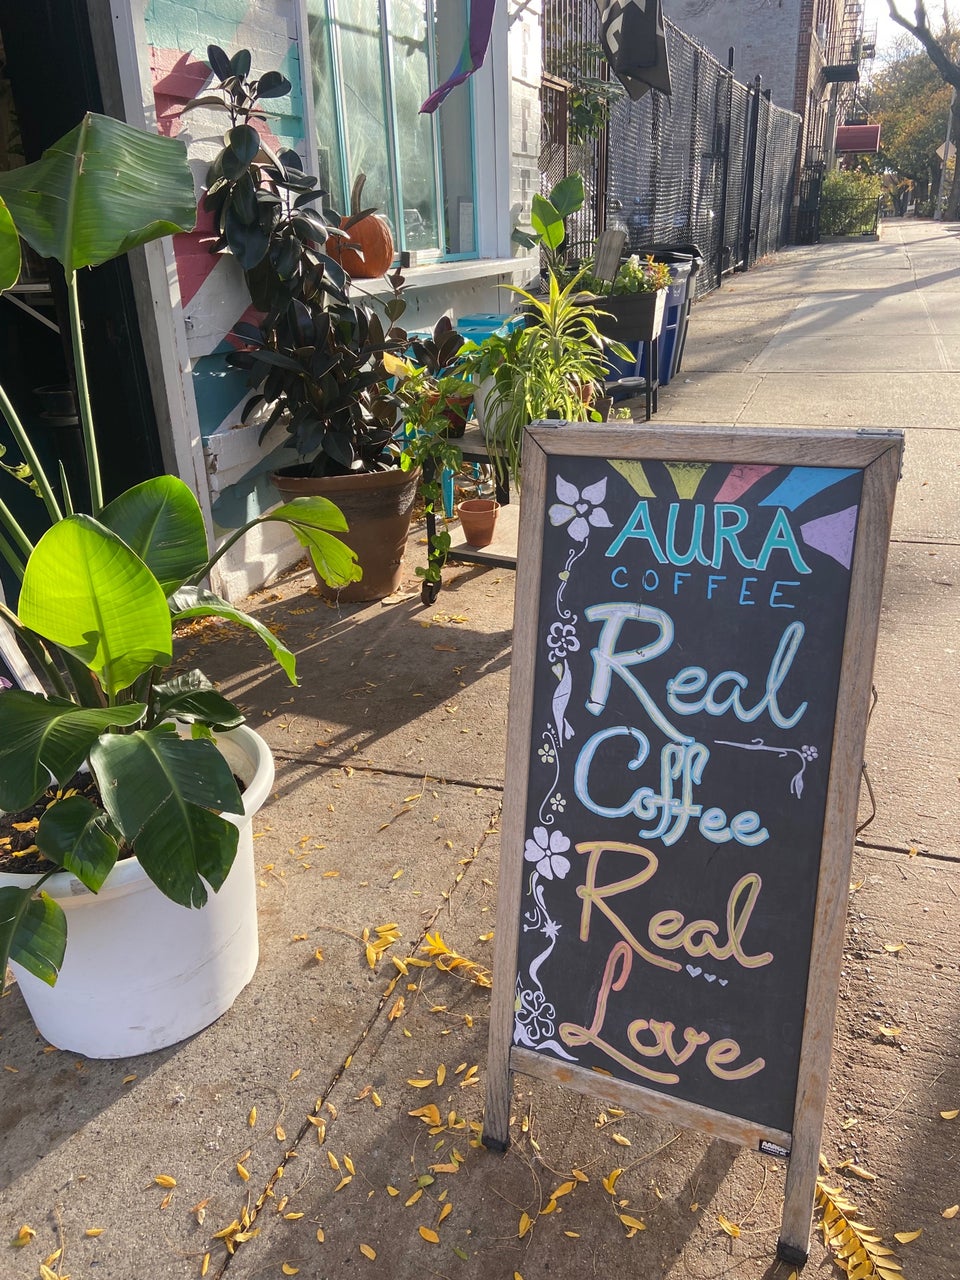 AURA
COFFEE
Real
Coffee
Real
Love